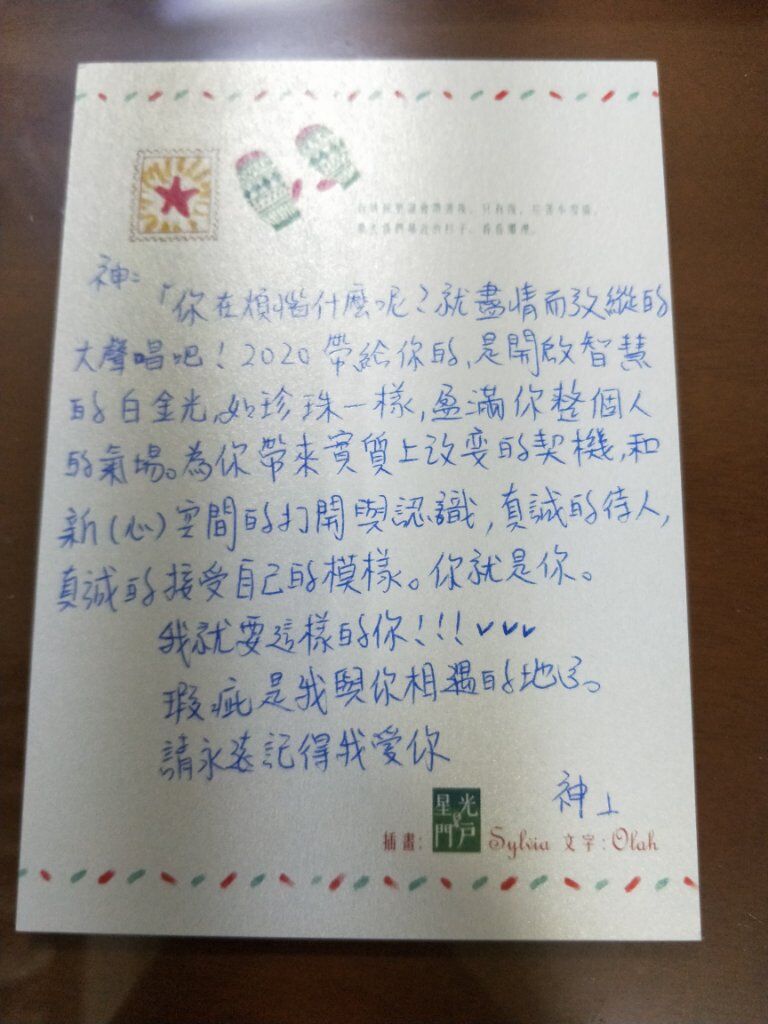 神:
「你在煩惱什麼呢?就盡情而放縱的
大聲唱吧!2020帶給你的,是開啟智慧
的白金光,如珍珠一樣,盈滿你整個人
的氣場。為你帶來實質上改变的契機,和
新(心)空間的打開與認識,真誠的待人,
真誠的接受自己的模樣。你就是你。
我就要這樣的你!!!✓✓✓
瑕疵是我與你相遇的地方。
請永遠記得我愛你
神上
插畫:
星光
門戶
Sylvia 文字:Olah